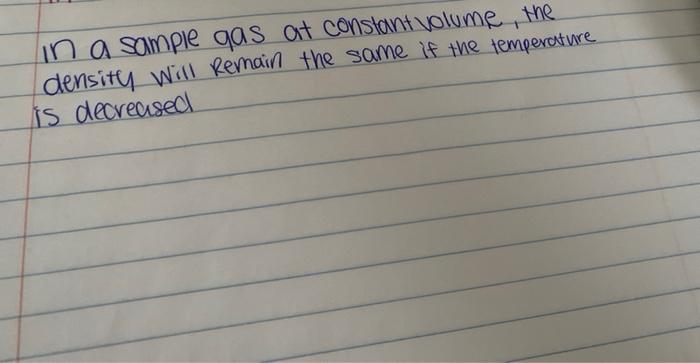 in a sample gas at constant volume, the
density will Remain the same if the temperature
is decreased